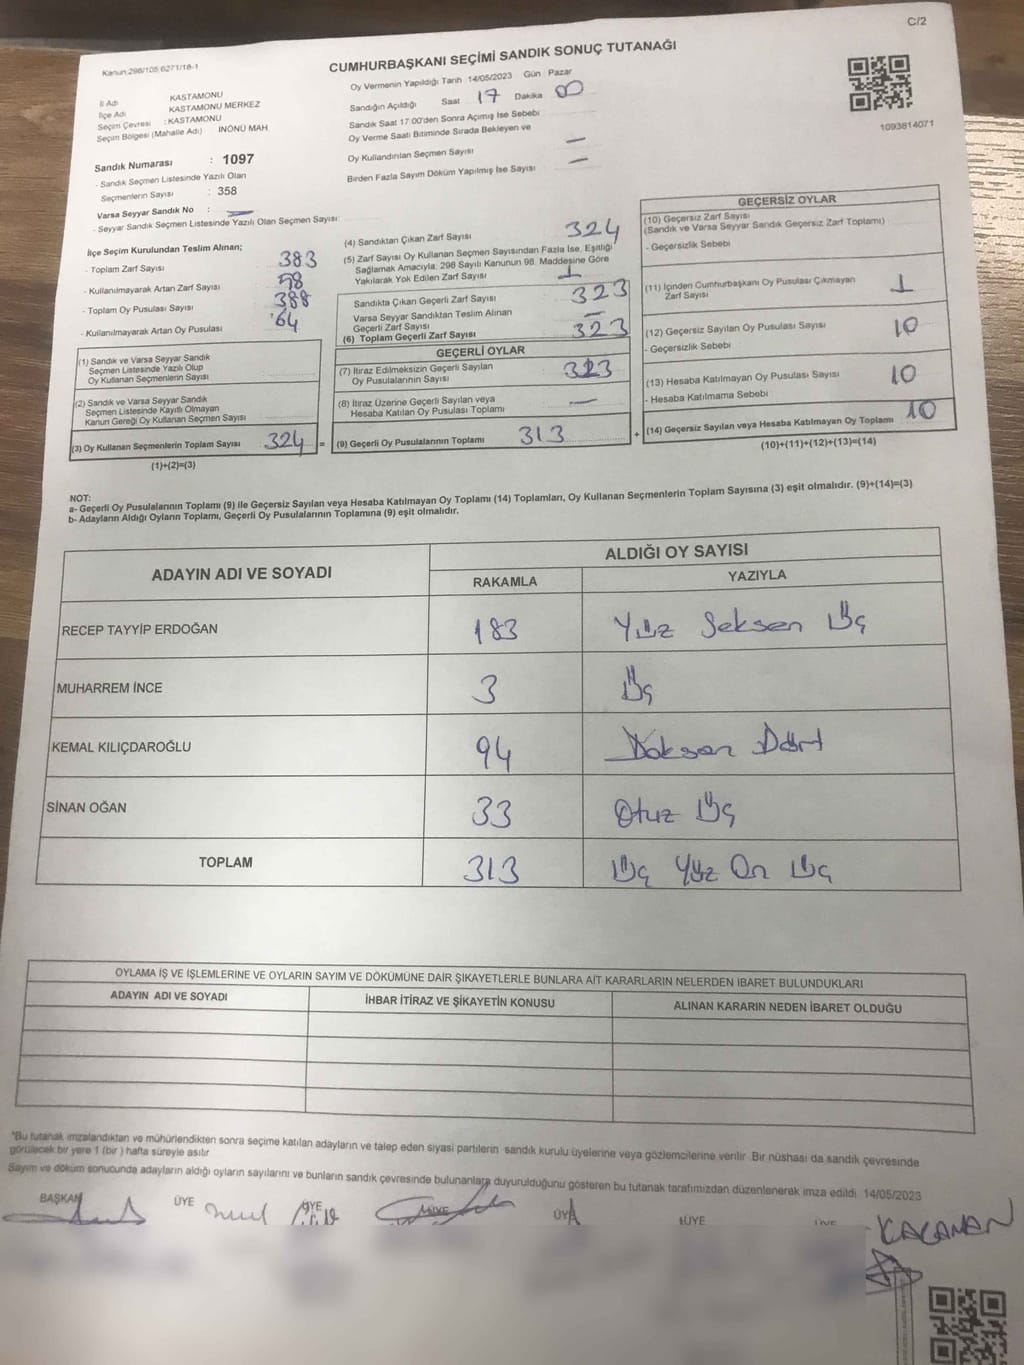 C/2
Kanun:298/105,6271/18-1
CUMHURBAŞKANI SEÇİMİ SANDIK SONUÇ TUTANAĞI
İl Adı KASTAMONU
İlçe Adı KASTAMONU MERKEZ
Seçim Çevresi : KASTAMONU
Seçim Bölgesi (Mahalle Adı) INÖNÜ MAH.
Oy Vermenin Yapıldığı Tarih 14/05/2023 Gün : Pazar
Sandığın Açıldığı Saat 17 Dakika 00
Sandık Saat 17:00'den Sonra Açımış İse Sebebi
Oy Verme Saati Bitiminde Sırada Bekleyen ve
Oy Kullandırılan Seçmen Sayısı —
Birden Fazla Sayım Döküm Yapılmış İse Sayısı —
1093814071
Sandık Numarası : 1097
- Sandık Seçmen Listesinde Yazılı Olan
Seçmenlerin Sayısı : 358
Varsa Seyyar Sandık No : —
- Seyyar Sandık Seçmen Listesinde Yazılı Olan Seçmen Sayısı:
İlçe Seçim Kurulundan Teslim Alınan;
- Toplam Zarf Sayısı 383
- Kullanılmayarak Artan Zarf Sayısı 58
- Toplam Oy Pusulası Sayısı 388
- Kullanılmayarak Artan Oy Pusulası 64
(1) Sandık ve Varsa Seyyar Sandık
Seçmen Listesinde Yazılı Olup
Oy Kullanan Seçmenlerin Sayısı
(2) Sandık ve Varsa Seyyar Sandık
Seçmen Listesinde Kayıtlı Olmayan
Kanun Gereği Oy Kullanan Seçmen Sayısı
(3) Oy Kullanan Seçmenlerin Toplam Sayısı 324 =
(1)+(2)=(3)
(4) Sandıktan Çıkan Zarf Sayısı 324
(5) Zarf Sayısı Oy Kullanan Seçmen Sayısından Fazla İse, Eşitliği
Sağlamak Amacıyla, 298 Sayılı Kanunun 98. Maddesine Göre
Yakılarak Yok Edilen Zarf Sayısı 1
Sandıkta Çıkan Geçerli Zarf Sayısı 323
Varsa Seyyar Sandıktan Teslim Alınan
Geçerli Zarf Sayısı —
(6) Toplam Geçerli Zarf Sayısı 323
GEÇERLİ OYLAR
(7) İtiraz Edilmeksizin Geçerli Sayılan
Oy Pusulasının Sayısı 323
(8) İtiraz Üzerine Geçerli Sayılan veya
Hesaba Katılan Oy Pusulası Toplamı —
(9) Geçerli Oy Pusulalarının Toplamı 313 +
GEÇERSİZ OYLAR
(10) Geçersiz Zarf Sayısı
(Sandık ve Varsa Seyyar Sandık Geçersiz Zarf Toplamı)
- Geçersizlik Sebebi
(11) İçinden Cumhurbaşkanı Oy Pusulası Çıkmayan
Zarf Sayısı 1
(12) Geçersiz Sayılan Oy Pusulası Sayısı 10
- Geçersizlik Sebebi
(13) Hesaba Katılmayan Oy Pusulası Sayısı 10
- Hesaba Katılmama Sebebi
(14) Geçersiz Sayılan veya Hesaba Katılmayan Oy Toplamı 10
(10)+(11)+(12)+(13)=(14)
NOT:
a- Geçerli Oy Pusulalarının Toplamı (9) ile Geçersiz Sayılan veya Hesaba Katılmayan Oy Toplamı (14) Toplamları, Oy Kullanan Seçmenlerin Toplam Sayısına (3) eşit olmalıdır. (9)+(14)=(3)
b- Adayların Aldığı Oyların Toplamı, Geçerli Oy Pusulalarının Toplamına (9) eşit olmalıdır.
ADAYIN ADI VE SOYADI
ALDIĞI OY SAYISI
RAKAMLA YAZIYLA
RECEP TAYYİP ERDOĞAN 183 Yüz Seksen Üç
MUHARREM İNCE 3 Üç
KEMAL KILIÇDAROĞLU 94 Doksan Dört
SİNAN OĞAN 33 Otuz Üç
TOPLAM 313 Üç Yüz On Üç
OYLAMA İŞ VE İŞLEMLERİNE VE OYLARIN SAYIM VE DÖKÜMÜNE DAİR ŞİKAYETLERLE BUNLARA AİT KARARLARIN NELERDEN İBARET BULUNDUKLARI
ADAYIN ADI VE SOYADI İHBAR İTİRAZ VE ŞİKAYETİN KONUSU ALINAN KARARIN NEDEN İBARET OLDUĞU
*Bu tutanak imzalandıktan ve mühürlendikten sonra seçime katılan adayların ve talep eden siyasi partilerin sandık kurulu üyelerine veya gözlemcilerine verilir. Bir nüshası da sandık çevresinde
görülecek bir yere 1 (bir ) hafta süreyle asılır
Sayım ve döküm sonucunda adayların aldığı oyların sayılarını ve bunların sandık çevresinde bulunanlara duyurulduğunu gösteren bu tutanak tarafımızdan düzenlenerek imza edildi. 14/05/2023
BAŞKAN ÜYE ÜYE ÜYE ÜYE ÜYE ÜYE KAGAMAN